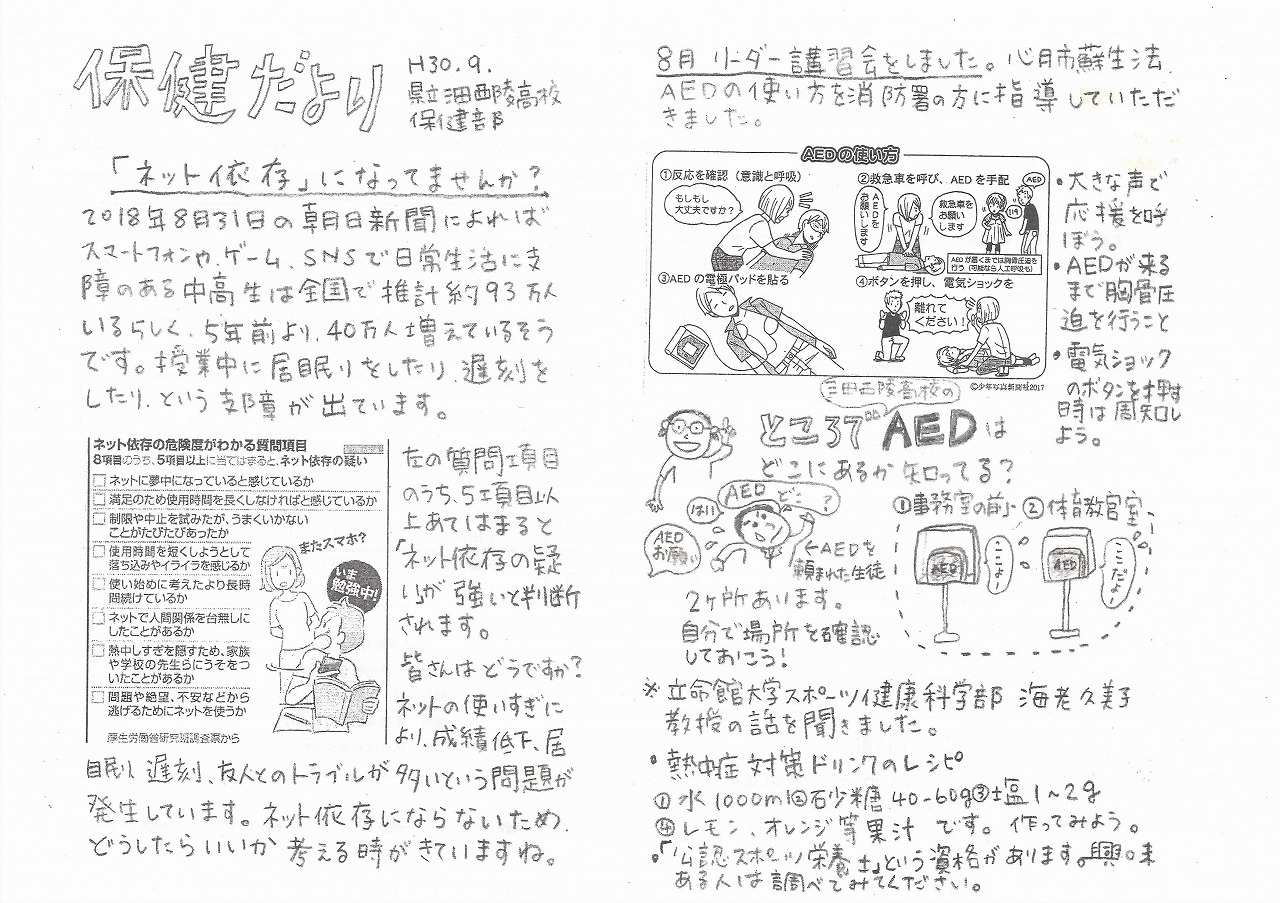 保健だより
H30.9.
県立三田西陵高校
保健部
「ネット依存」になってませんか？
2018年8月31日の朝日新聞によれば
スマートフォンや、ゲーム、SNSで日常生活に支
障のある中高生は全国で推計約93万人
いるらしく、5年前より、40万人増えているそう
です。授業中に居眠りをしたり、遅刻を
したり、という支障が出ています。
ネット依存の危険度がわかる質問項目
8項目のうち、5項目以上に当てはまると、ネット依存の疑い
ネットに夢中になっていると感じているか
満足のため使用時間を長くしなければと感じているか
制限や中止を試みたが、うまくいかない
ことがたびたびあったか
使用時間を短くしようとして
落ち込みやイライラを感じるか
使い始めに考えたより長時
間続けているか
ネットで人間関係を台無しに
したことがあるか
熱中しすぎを隠すため、家族
や学校の先生らにうそをつ
いたことがあるか
問題や絶望、不安などから
逃げるためにネットを使うか
厚生労働省研究班調査票から
またスマホ？
いま
勉強中!!
左の質問項目
のうち、5項目以
上あてはまると
「ネット依存の疑
い」が強いと判断
されます。
皆さんはどうですか？
ネットの使いすぎに
より、成績低下、居
眠り、遅刻、友人とのトラブルが多いという問題が
発生しています。ネット依存にならないため、
どうしたらいいか考える時がきていますね。
8月 リーダー講習会をしました。心肺蘇生法、
AEDの使い方を消防署の方に指導していただ
きました。
AEDの使い方
①反応を確認（意識と呼吸）
もしもし
大丈夫ですか？
②救急車を呼び、AEDを手配
AEDを
お願いします
救急車を
お願い
します
119
AED
AEDが届くまでは胸骨圧迫を
行う（可能なら人工呼吸も）
③AEDの電極パッドを貼る
④ボタンを押し、電気ショックを
離れて
ください！
©少年写真新聞社2017
・大きな声で
応援を呼
ぼう。
・AEDが来る
まで胸骨圧
迫を行うこと
・電気ショック
のボタンを押す
時は周知し
よう。
三田西陵高校の
ところでAEDは
どこにあるか知ってる？
AEDどこ？
はい
AED
お願い
←AEDを
頼まれた生徒
①事務室の前
②体育教官室
AED
ここよー
AED
ここだよー
2ヶ所あります。
自分で場所を確認
しておこう！
※ 立命館大学スポーツ健康科学部 海老久美子
教授の話を聞きました。
・熱中症対策ドリンクのレシピ
①水1000ml②石少糖40-60g③塩1～2g
④レモン、オレンジ等果汁 です。作ってみよう。
・「公認スポーツ栄養士」という資格があります。興味
ある人は調べてみてください。